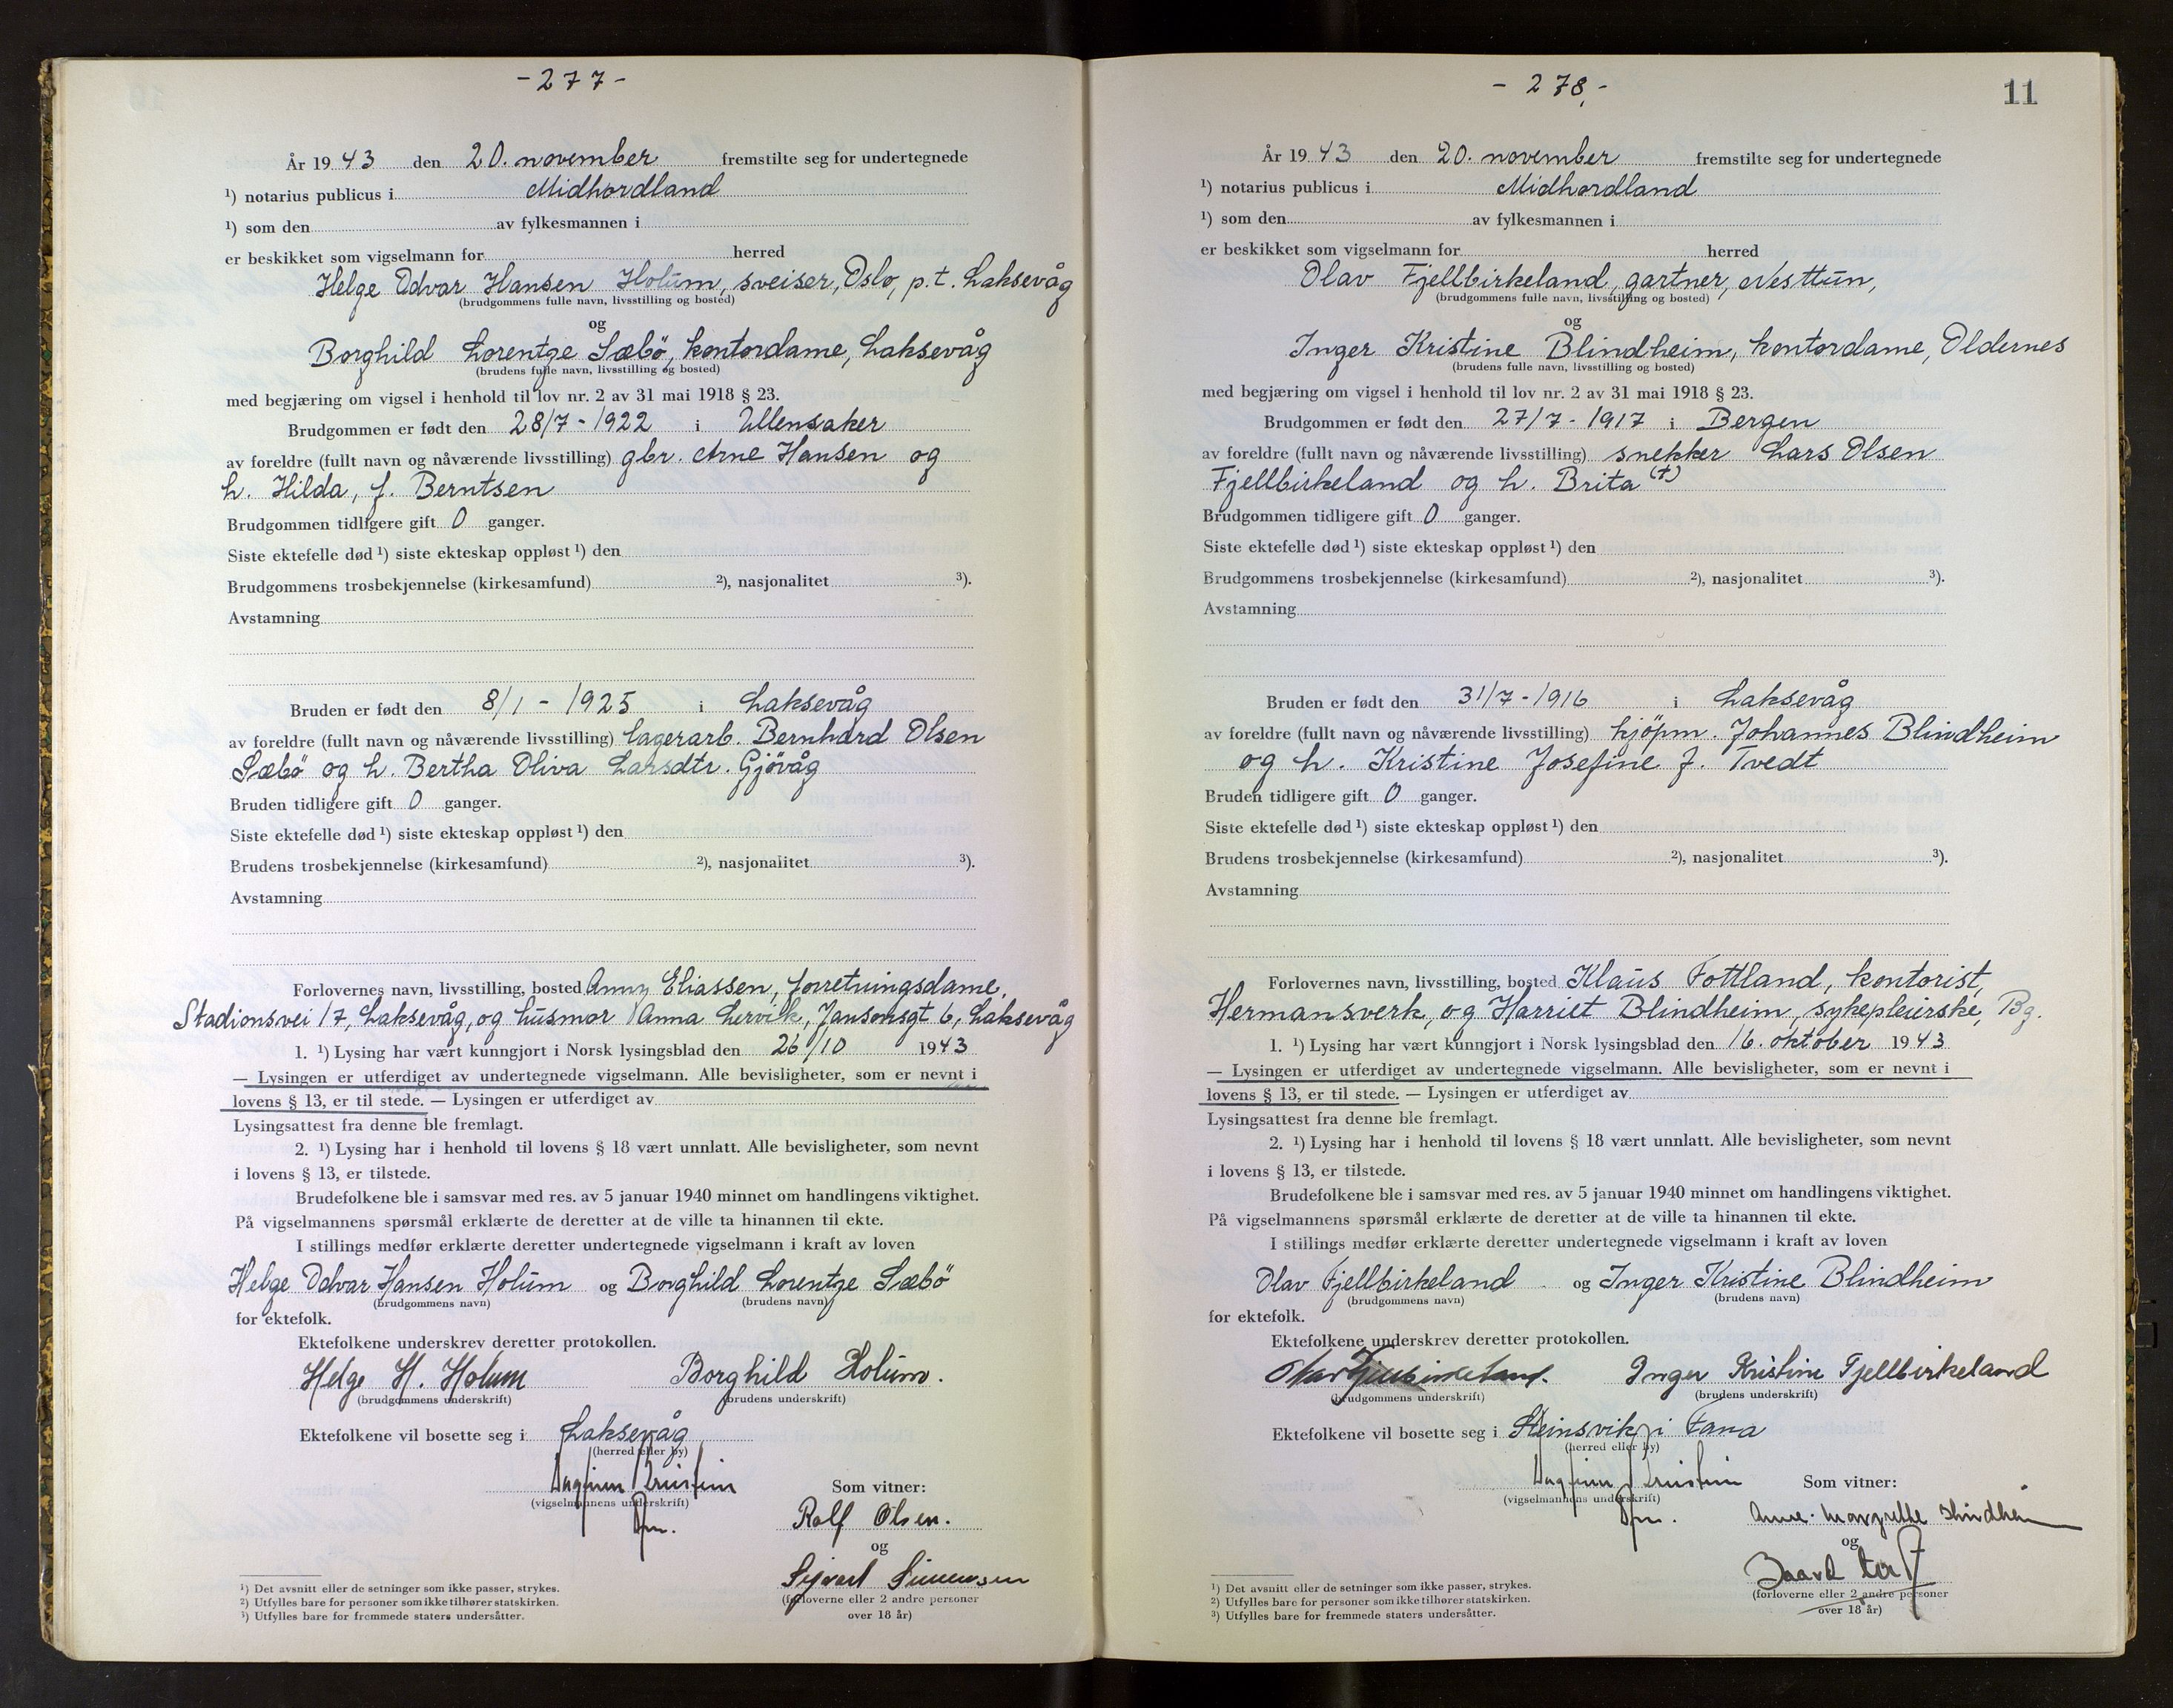 - 277 -
År 1943 den 20. november fremstilte seg for undertegnede
¹) notarius publicus i Midhordland
¹) som den av fylkesmannen i
er beskikket som vigselmann for herred
Helge Odvar Hansen Holum, sveiser, Oslo, p.t. Laksevåg
(brudgommens fulle navn, livsstilling og bosted)
og
Borghild Lorentze Sæbö, kontordame, Laksevåg
(brudens fulle navn, livsstilling og bosted)
med begjæring om vigsel i henhold til lov nr. 2 av 31 mai 1918 § 23.
Brudgommen er født den 28/7 - 1922 i Ullensaker
av foreldre (fullt navn og nåværende livsstilling) gbr. Arne Hansen og
h. Hilda, f. Berntsen
Brudgommen tidligere gift 0 ganger.
Siste ektefelle død ¹) siste ekteskap oppløst ¹) den
Brudgommens trosbekjennelse (kirkesamfund) ²), nasjonalitet ³).
Avstamning
Bruden er født den 8/1 - 1925 i Laksevåg
av foreldre (fullt navn og nåværende livsstilling) lagerarb. Bernhard Olsen
Sæbö og h. Bertha Oliva Larsdtr. Gjövåg
Bruden tidligere gift 0 ganger.
Siste ektefelle død ¹) siste ekteskap oppløst ¹) den
Brudens trosbekjennelse (kirkesamfund) ²), nasjonalitet ³).
Avstamning
Forlovernes navn, livsstilling, bosted Anny Eliassen, forretningsdame,
Stadionsvei 17, Laksevåg, og husmor Anna Lervik, Jansonsgt 6, Laksevåg
1. ¹) Lysing har vært kunngjort i Norsk lysingsblad den 26/10 1943
— Lysingen er utferdiget av undertegnede vigselmann. Alle bevisligheter, som er nevnt i
lovens § 13, er til stede. — Lysingen er utferdiget av
Lysingsattest fra denne ble fremlagt.
2. ¹) Lysing har i henhold til lovens § 18 vært unnlatt. Alle bevisligheter, som nevnt
i lovens § 13, er tilstede.
Brudefolkene ble i samsvar med res. av 5 januar 1940 minnet om handlingens viktighet.
På vigselmannens spørsmål erklærte de deretter at de ville ta hinannen til ekte.
I stillings medfør erklærte deretter undertegnede vigselmann i kraft av loven
Helge Odvar Hansen Holum og Borghild Lorentze Sæbö
(brudgommens navn) (brudens navn)
for ektefolk.
Ektefolkene underskrev deretter protokollen.
Helge H. Holum Borghild Holum.
(brudgommens underskrift) (brudens underskrift)
Ektefolkene vil bosette seg i Laksevåg
(herred eller by)
Som vitner:
(vigselmannens underskrift)
Rolf Olsen.
og
Sigvart Simonsen
(forloverne eller 2 andre personer
over 18 år)
¹) Det avsnitt eller de setninger som ikke passer, strykes.
²) Utfylles bare for personer som ikke tilhører statskirken.
³) Utfylles bare for fremmede staters undersåtter.
- 278. -
11
År 1943 den 20. november fremstilte seg for undertegnede
¹) notarius publicus i Midhordland
¹) som den av fylkesmannen i
er beskikket som vigselmann for herred
Olav Fjellbirkeland, gartner, Nesttun,
(brudgommens fulle navn, livsstilling og bosted)
og
Inger Kristine Blindheim, kontordame, Oldernes
(brudens fulle navn, livsstilling og bosted)
med begjæring om vigsel i henhold til lov nr. 2 av 31 mai 1918 § 23.
Brudgommen er født den 27/7 - 1917 i Bergen
av foreldre (fullt navn og nåværende livsstilling) snekker Lars Olsen
Fjellbirkeland og h. Brita (†)
Brudgommen tidligere gift 0 ganger.
Siste ektefelle død ¹) siste ekteskap oppløst ¹) den
Brudgommens trosbekjennelse (kirkesamfund) ²), nasjonalitet ³).
Avstamning
Bruden er født den 31/7 - 1916 i Laksevåg
av foreldre (fullt navn og nåværende livsstilling) kjöpm. Johannes Blindheim
og h. Kristine Josefine f. Tvedt
Bruden tidligere gift 0 ganger.
Siste ektefelle død ¹) siste ekteskap oppløst ¹) den
Brudens trosbekjennelse (kirkesamfund) ²), nasjonalitet ³).
Avstamning
Forlovernes navn, livsstilling, bosted Klaus Tottland, kontorist,
Hermansverk, og Harriet Blindheim, sykepleierske, Bg.
1. ¹) Lysing har vært kunngjort i Norsk lysingsblad den 16. oktober 1943
— Lysingen er utferdiget av undertegnede vigselmann. Alle bevisligheter, som er nevnt i
lovens § 13, er til stede. — Lysingen er utferdiget av
Lysingsattest fra denne ble fremlagt.
2. ¹) Lysing har i henhold til lovens § 18 vært unnlatt. Alle bevisligheter, som nevnt
i lovens § 13, er tilstede.
Brudefolkene ble i samsvar med res. av 5 januar 1940 minnet om handlingens viktighet.
På vigselmannens spørsmål erklærte de deretter at de ville ta hinannen til ekte.
I stillings medfør erklærte deretter undertegnede vigselmann i kraft av loven
Olav Fjellbirkeland og Inger Kristine Blindheim
(brudgommens navn) (brudens navn)
for ektefolk.
Ektefolkene underskrev deretter protokollen.
Olav Fjellbirkeland. Inger Kristine Fjellbirkeland
(brudgommens underskrift) (brudens underskrift)
Ektefolkene vil bosette seg i Steinsvik i Fana
(herred eller by)
Som vitner:
(vigselmannens underskrift)
Anne-Margrethe Blindheim
og
(forloverne eller 2 andre personer
over 18 år)
¹) Det avsnitt eller de setninger som ikke passer, strykes.
²) Utfylles bare for personer som ikke tilhører statskirken.
³) Utfylles bare for fremmede staters undersåtter.